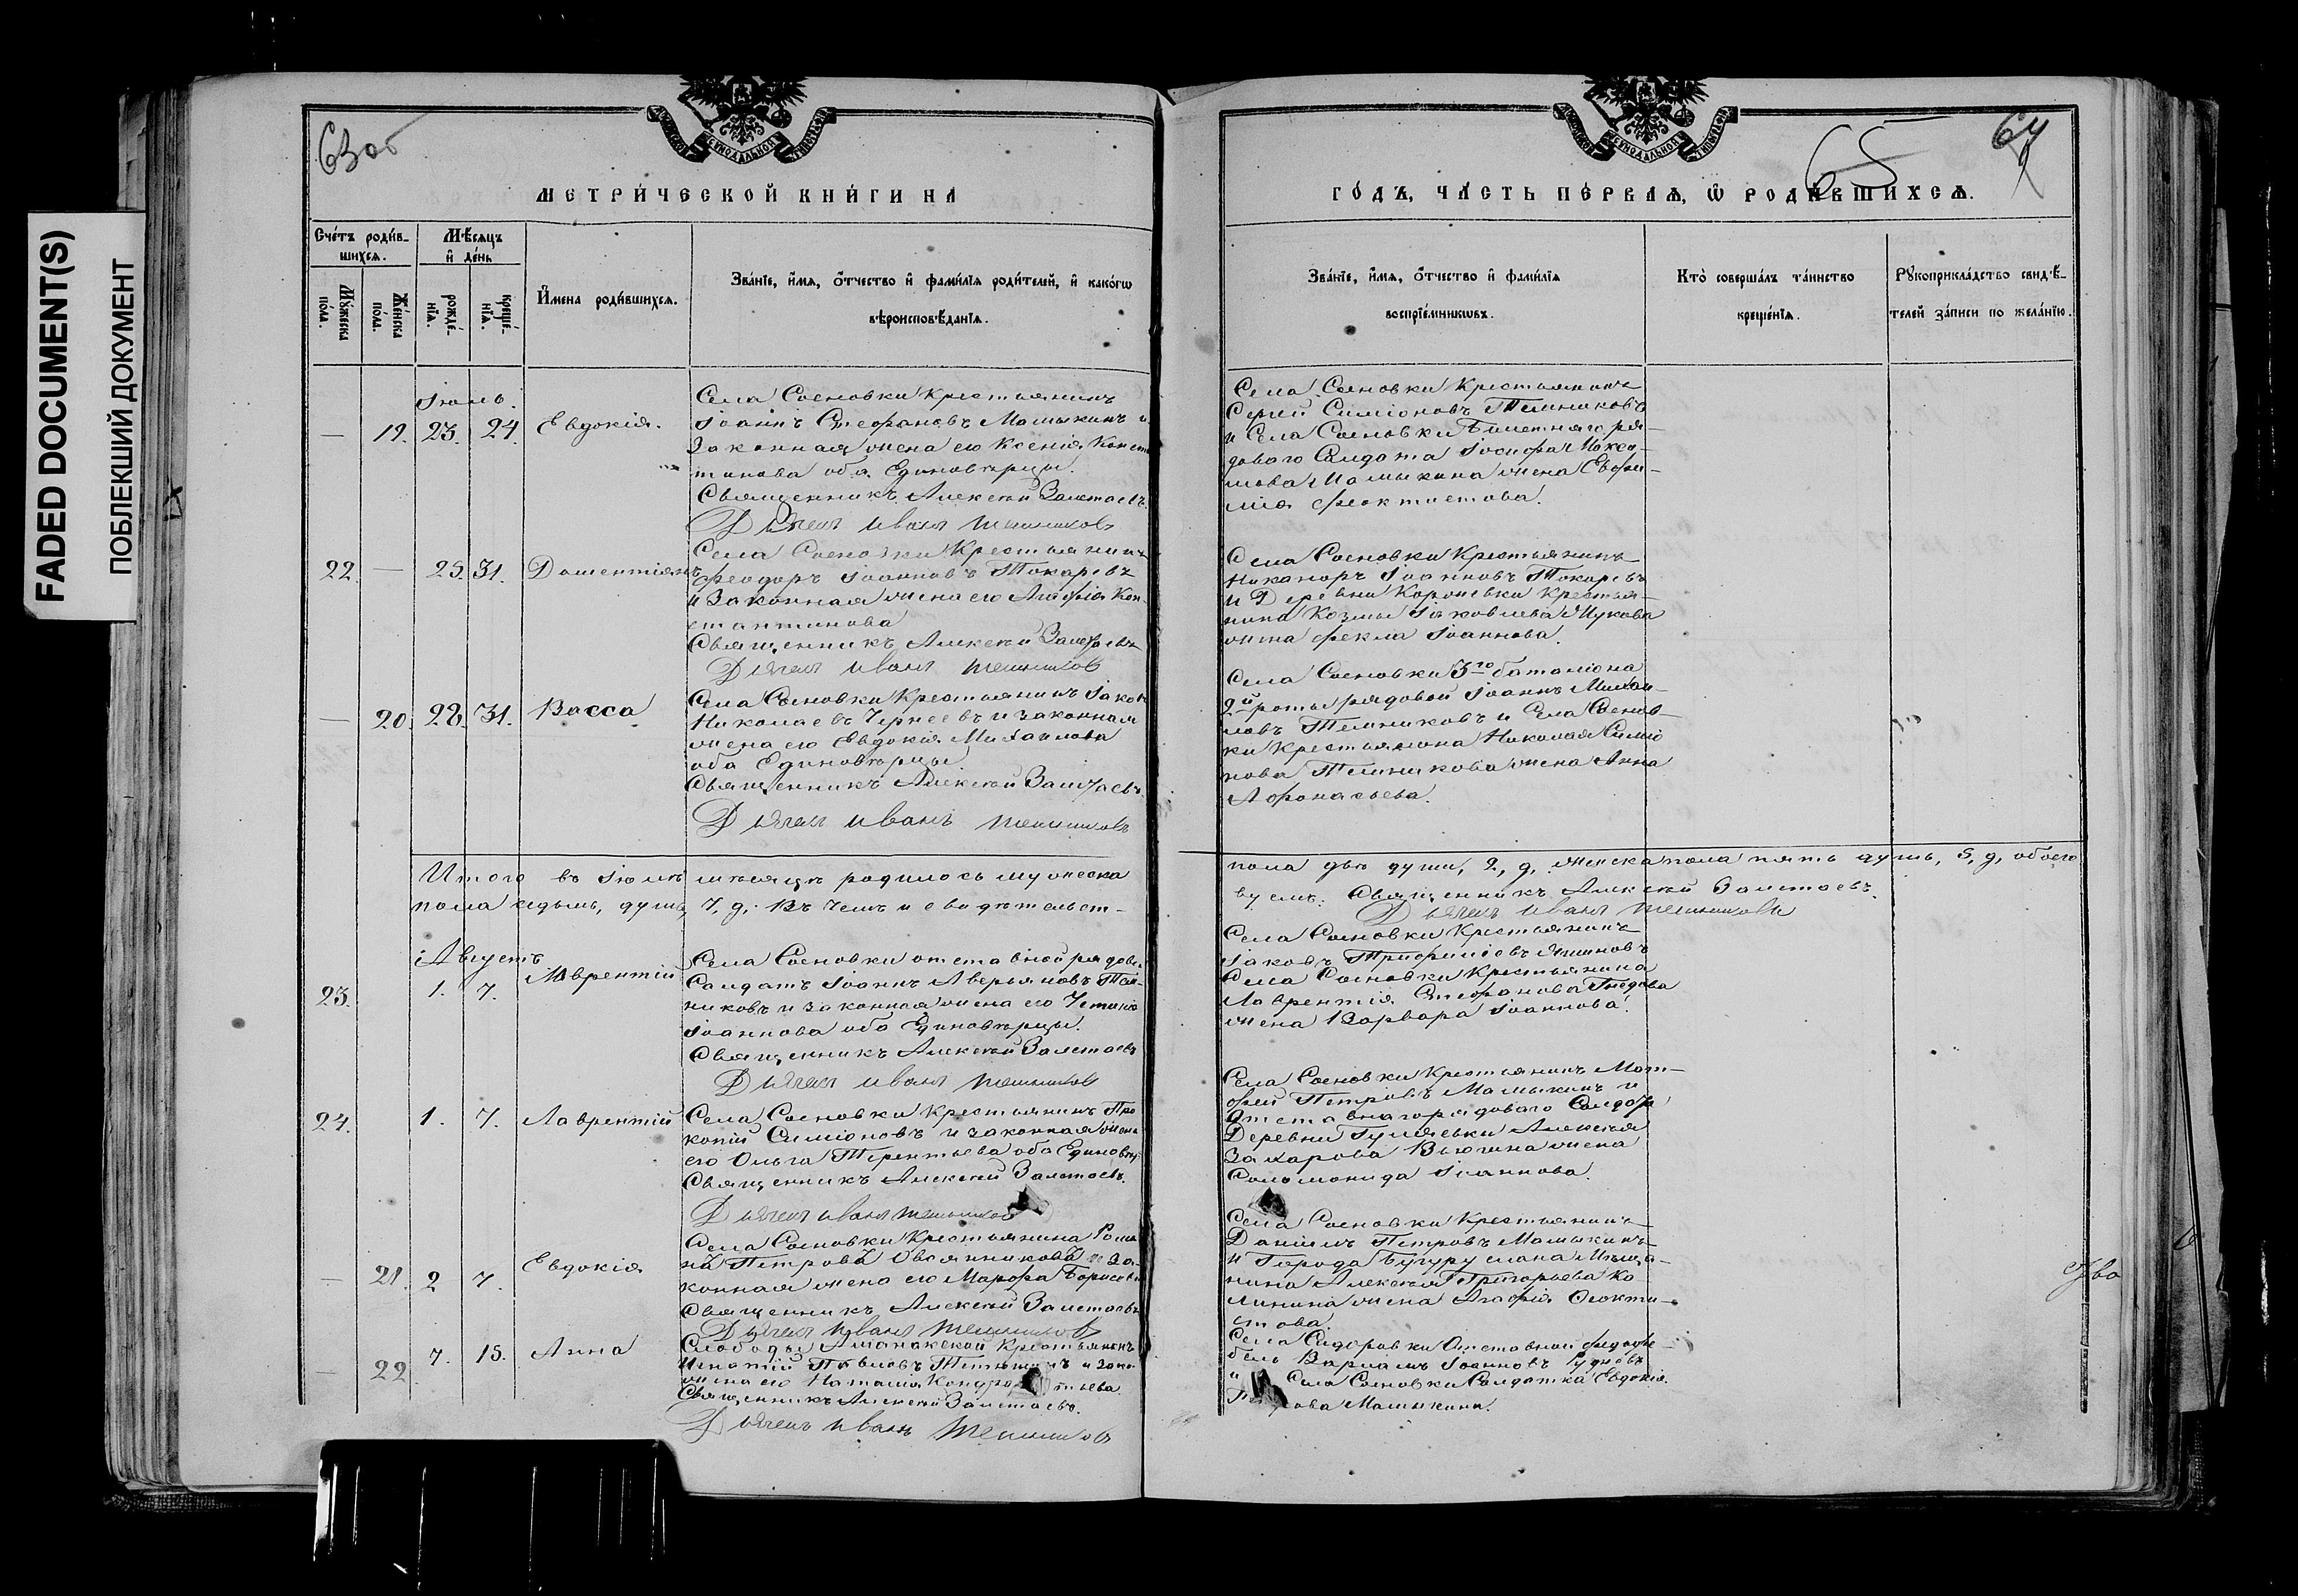 FADED DOCUMENT(S)
ПОБЛЕКШИЙ ДОКУМЕНТ
63об
МЕТРИ́ЧЕСКОЙ КНИ́ГИ НА
Сче́тъ роди́в-
шихсѧ.
Мѣ́сѧцъ
и҆ де́нь
Мꙋ́жеска
по́ла.
Же́нска
по́ла.
рожде́-
нїѧ.
креще́-
нїѧ.
И҆мена роди́вшихсѧ.
Зва́нїе, и҆́мѧ, ѻ҆́тчество и҆ фами́лїѧ роди́телей, и҆ како́гѡ
вѣроисповѣ́данїѧ.
Іюль.
— 19. 23. 24. Евдокія.
Села Сосновки Крестьянинъ
Іоаннъ Стефановъ Мамыкинъ и
Законная жена его Ксенія Конст
тинова оба Единовѣрцы.
Священникъ Алексѣй Залетаевъ.
Дьячекъ Иванъ
22. — 25. 31. Доментіанъ
Села Сосновки Крестьянинъ
Феодоръ Іоанновъ Токаревъ
и Законная жена его Агафія Кон-
стантинова
Священникъ Алексѣй Залетаевъ
Дьячекъ Иванъ
— 20. 28. 31. Васса
Села Сосновки Крестьянинъ Іаковъ
Николаевъ Чернеевъ и законная
жена его Евдокія Михаилова
оба Единовѣрцы.
Священникъ Алексѣй Залетаевъ.
Дьячекъ Иванъ
Итого въ Іюлѣ мѣсяцѣ родилось мужеска
пола седьмь, душъ, 7, д. Въ чемъ и свидѣтельст-
Августъ
23. 1. 7. Лаврентій
Села Сосновки отставной рядовой
Салдатъ Іоаннъ Аверьяновъ Тем-
никовъ и законная жена его Устинія
Іоаннова оба Единовѣрцы.
Священникъ Алексѣй Залетаевъ
Дьячекъ Иванъ
24. 1. 7. Лаврентій
Села Сосновки Крестьянинъ Про
копій Симіоновъ и законная жена
его Ольга Терентьева оба Единовѣр
Священникъ Алексѣй Залетаевъ.
Дьячекъ Иванъ
— 21. 2 7. Евдокія
Села Сосновки Крестьянина Рома
на Петрова Овсянникова и За-
конная жена его Марфа Борисова
Священникъ Алексѣй Залетаевъ
Дьячекъ Иванъ
— 22. 7. 15. Анна
Слободы Крестьянинъ
Игнатій Павловъ и Зако.
жена его Наталія
Священникъ Алексѣй Залетаевъ.
Дьячекъ Иванъ
65
64
ГО́ДЪ, ЧА́СТЬ ПЕ́РВАѦ, Ѡ҆ РОДИ́ВШИХСѦ.
Зва́нїе, и҆́мѧ, ѻ҆́тчество и҆ фами́лїѧ
воспрїе́мникѡвъ.
Кто̀ соверша́лъ та́инство
креще́нїѧ.
Рꙋкоприкла́дство свидѣ́-
телей за́писи по жела́нїю.
Села Сосновки Крестьянинъ
Сергей Симіоновъ Темниковъ
и Села Сосновки Билетнаго ря-
доваго Салдата Іосифа Макси-
мова Мамыкина жена Евфи-
мія Феоктистова.
Села Сосновки Крестьянинъ
Никаноръ Іоанновъ Токаревъ
и Деревни Крестья-
нина Козмы Іаковлева Жукова
жена Фекла Іоаннова.
Села Сосновки 3го баталіона
2й роты рядовой Іоаннъ Михаи-
ловъ Темниковъ и Села Соснов-
ки Крестьянина Николая Симіо
нова Темникова жена Анна
Афонасьева.
пола двѣ души, 2, д, женска пола пять душъ, 5, д, обоего
вуемъ: Священникъ Алексѣй Залетаевъ.
Дьячекъ Иванъ
Села Сосновки Крестьянинъ
Іаковъ Трифиліевъ
Села Сосновки Крестьянина
Лаврентія Стефанова Гнедова
жена Варвара Іоаннова.
Села Сосновки Крестьянинъ Мат-
фей Петровъ Мамыкинъ и
Отставнаго рядоваго
Деревни Алексѣя
Захарова жена
Соломонида Іоаннова.
Села Сосновки Крестьянинъ
Даніилъ Петровъ Мамыкинъ
и Города Бугуруслана Мѣща-
нина Алексѣя Григорьева Ка
линина жена Агафія Феокти-
стова.
Села Сидоровки Отставной
Варлаамъ Іоанновъ
и Села Сосновки Салдатка Евдокія
Мамыкина.